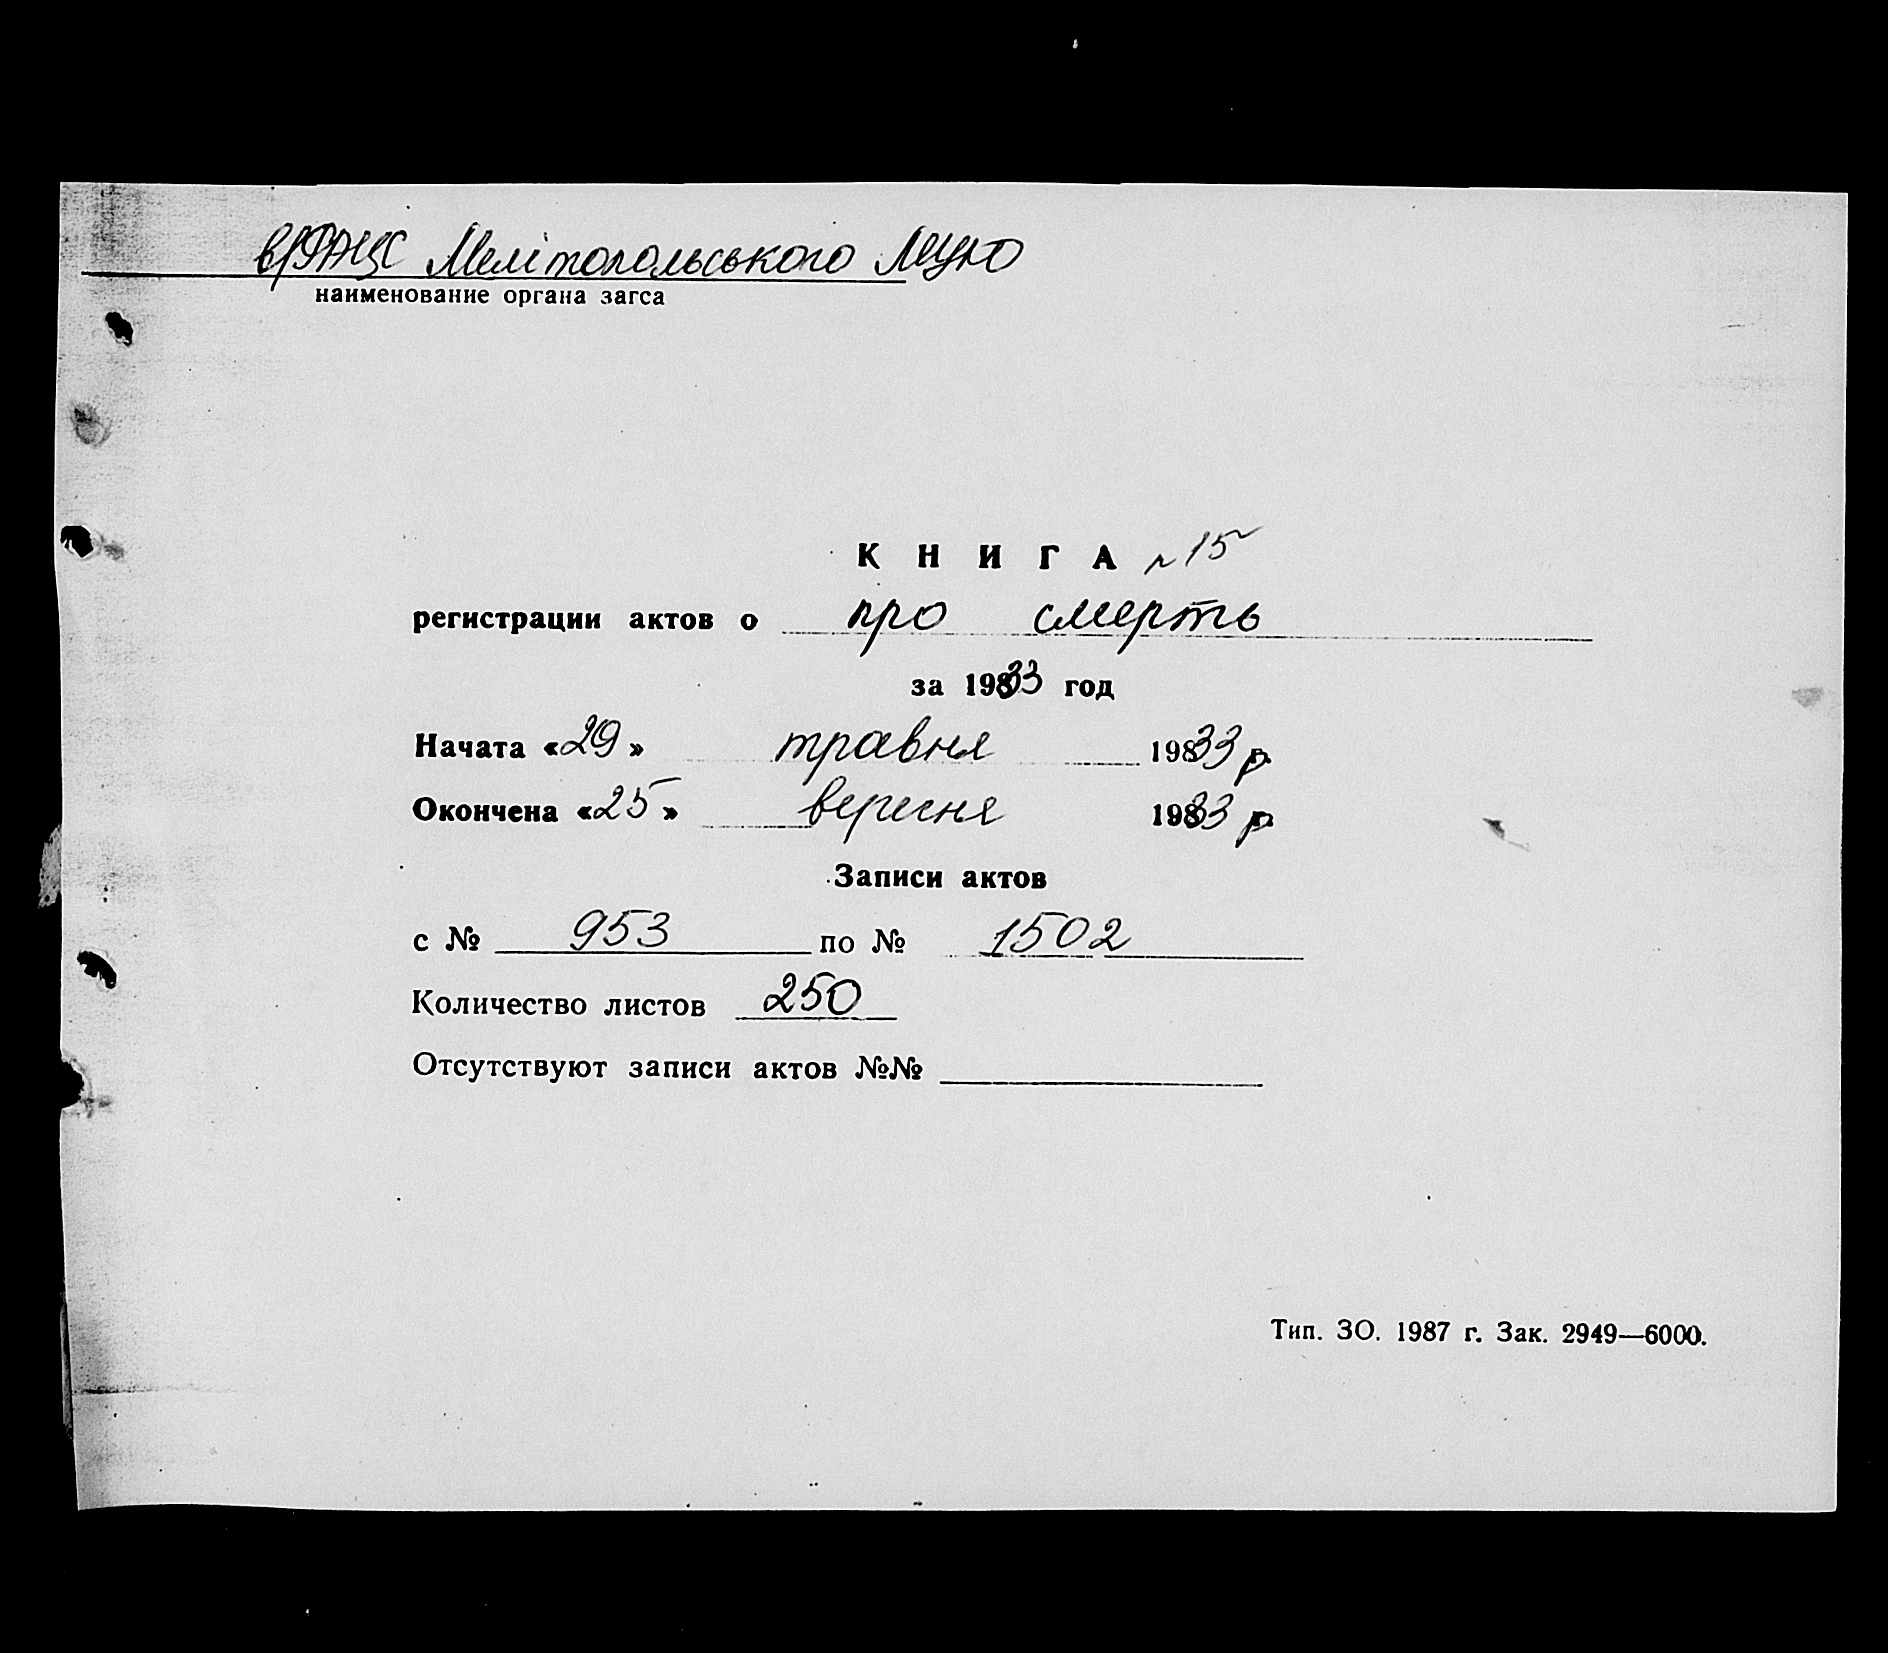 вРАЦС Мелітопольського МЦЮ
наименование органа загса
КНИГА № 15
регистрации актов о про смерть
за 1933 год
Начата «29» травня 1933 р.
Окончена «25» вересня 1933 р.
Записи актов
с № 953 по № 1502
Количество листов 250
Отсутствуют записи актов №№
Тип. ЗО. 1987 г. Зак. 2949—6000.